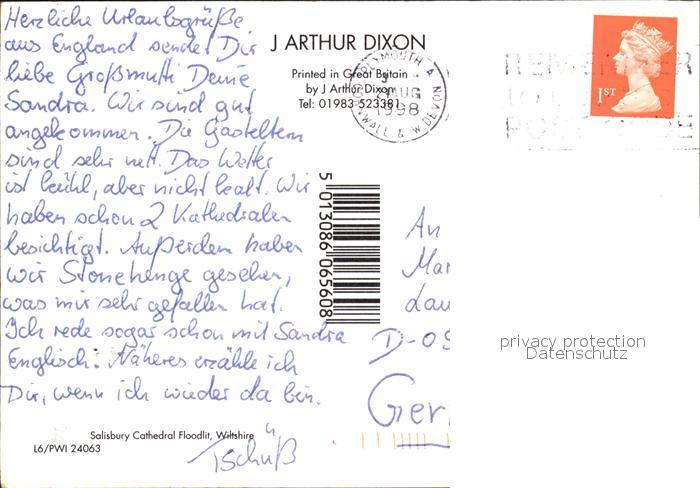 Herzliche Urlaubsgrüße
aus England sendet Dir
liebe Großmutti Deine
Sandra. Wir sind gut
angekommen. Die Gasteltern
sind sehr nett. Das Wetter
ist kühl, aber nicht kalt. Wir
haben schon 2 Kathedralen
besichtigt. Außerdem haben
wir Stonehenge gesehen,
was mir sehr gefallen hat.
Ich rede sogar schon mit Sandra
Englisch. Näheres erzähle ich
Dir, wenn ich wieder da bin.
Tschüß
J ARTHUR DIXON
Printed in Great Britain
by J Arthur Dixon
Tel: 01983 523381
PLYMOUTH A
AUG
1998
CORNWALL & W. DEVON
1ST
5 013086 065608
An
Mar
Lau
D-09
Ger
privacy protection
Datenschutz
Salisbury Cathedral Floodlit, Wiltshire
L6/PWI 24063